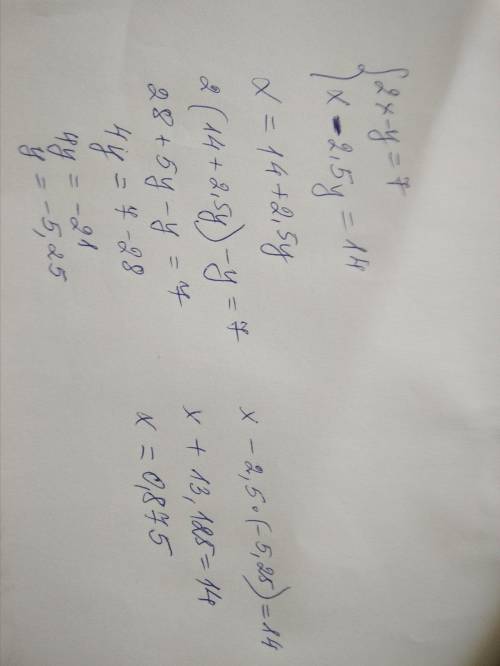 {2x-y=7
x-2,5y=14
x=14+2,5y
2(14+2,5y)-y=7
28+5y-y=7
4y=7-28
4y=-21
y=-5,25
x-2,5·(-5,25)=14
x+13,125=14
x=0,875